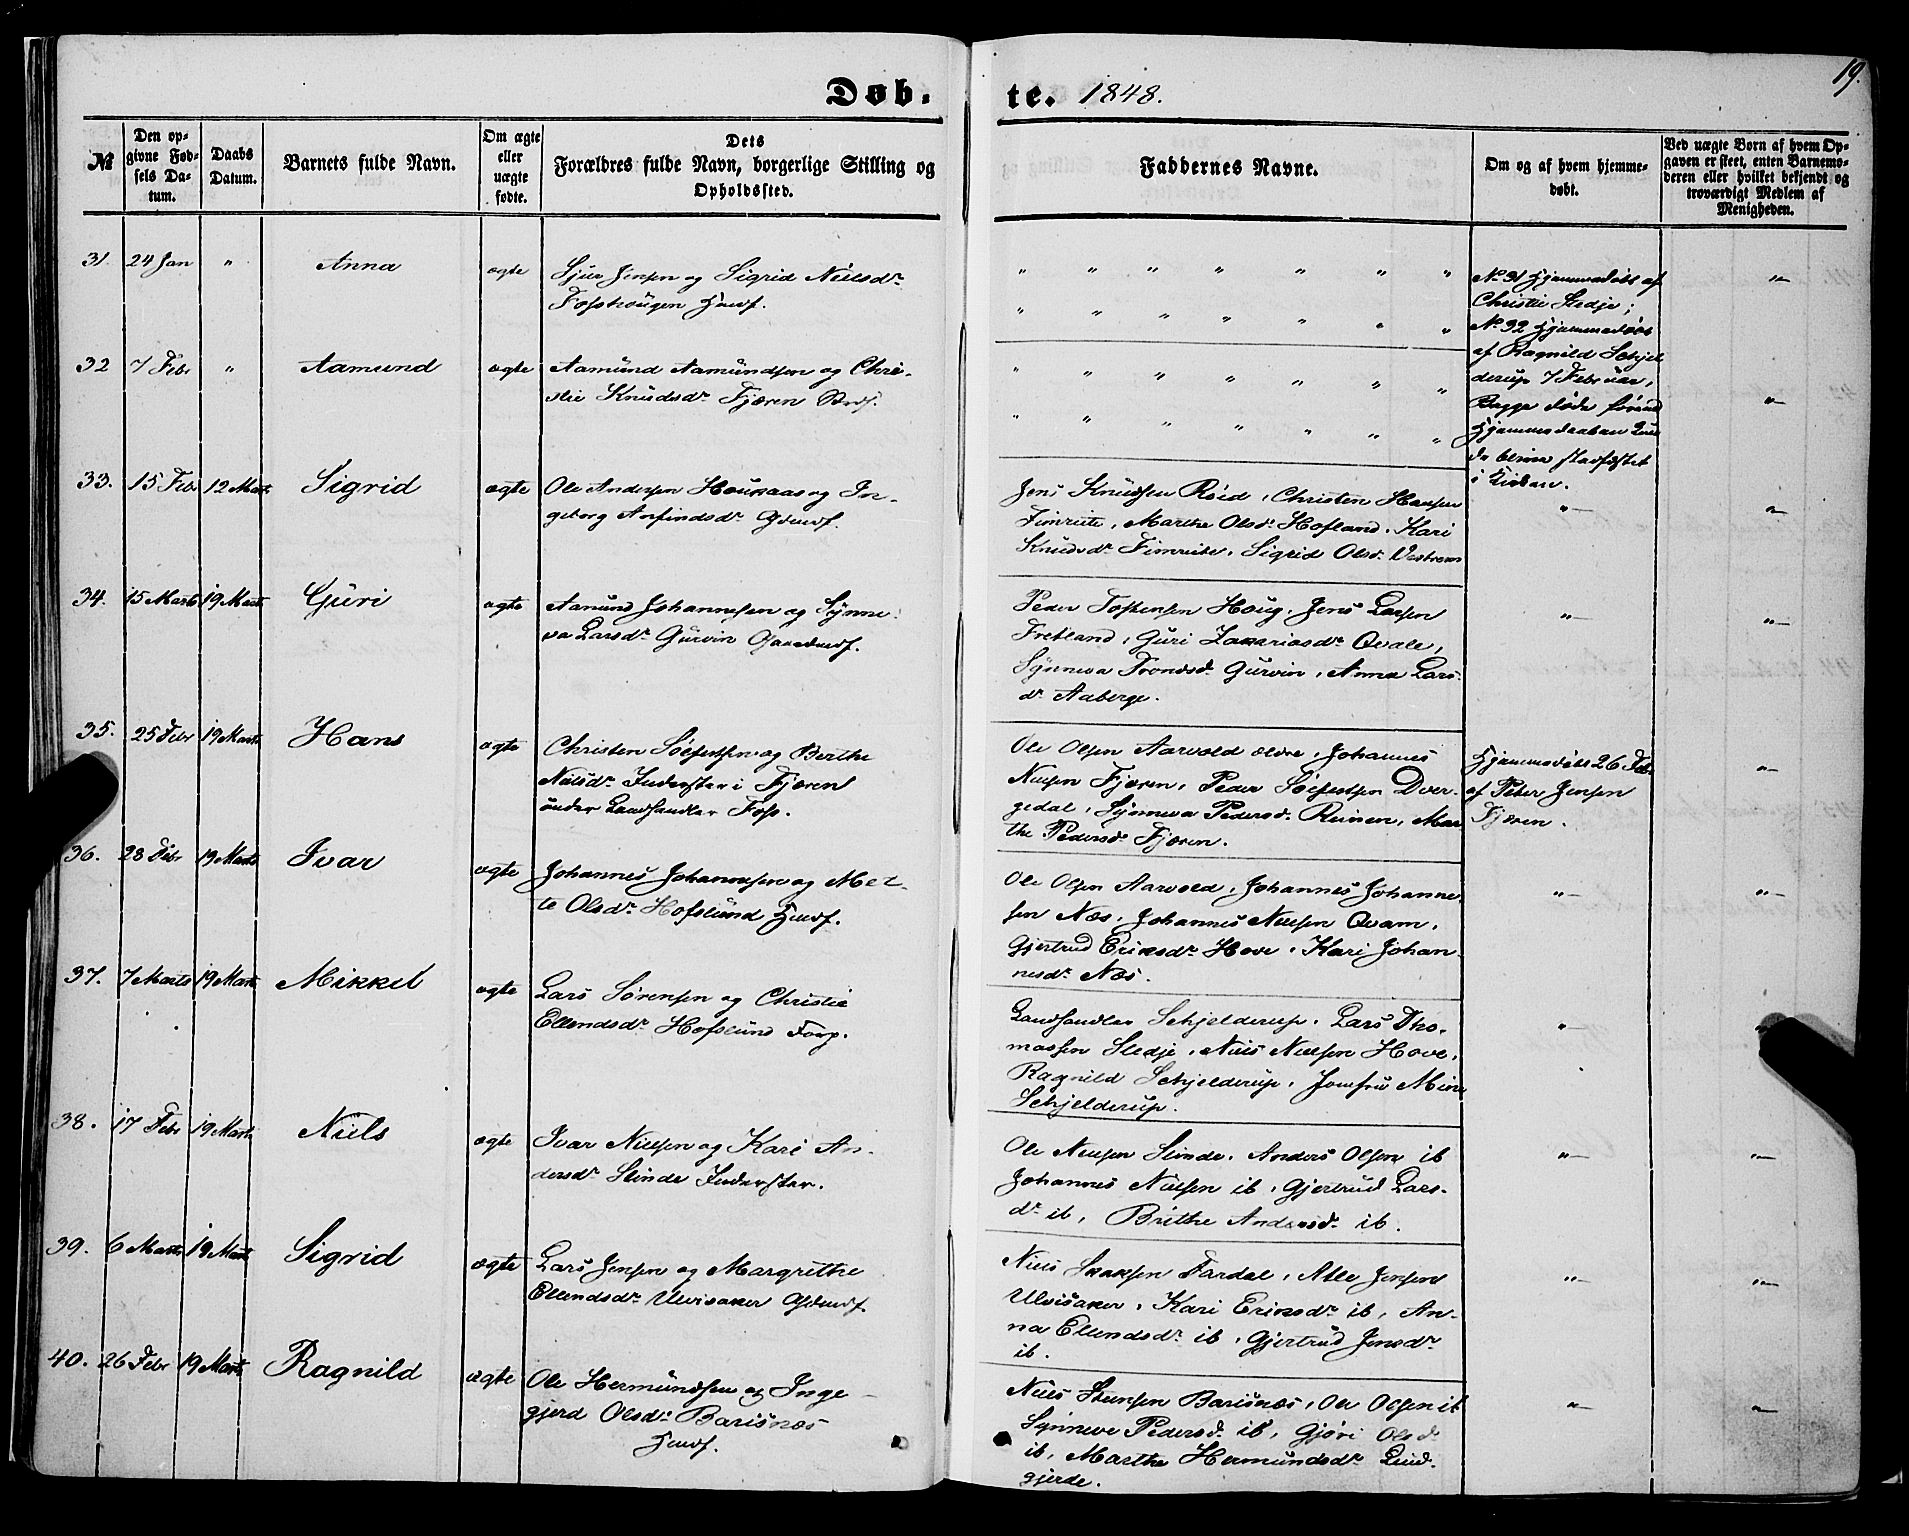 Døb. te. 1848. 19.
№
Den op-
givne Fød-
sels Da-
tum.
Daabs
Datum.
Barnets fulde Navn.
Om ægte
eller
uægte
fødte.
Dets
Forældres fulde Navn, borgerlige Stilling og
Opholdssted.
Faddernes Navne.
Om og af hvem hjemme-
døbt.
Ved uægte Børn af hvem Op-
gaven er skeet, enten Barnemo-
deren eller hvilket bekjendt og
troværdigt Medlem af
Menigheden.
31. 24 Jan " Anna ægte Sjur Jensen og Sigrid Nielsdr
Fosshougen Huusf.
" " " " " " "
" " " " " " "
No 31 Hjemmedøbt af
Christie Sledje;
No 32 Hjemmedøbt
af Ragnild Schjel
derup 7 Februar,
Begge døde førend
Hjemmedaaben kun
de blive stadfæstet
i Kirken.
"
32 7 Febr " Aamund ægte Aamund Aamundsen og Chri-
stie Knudsdr Fjæren
" " " " " " "
" " " " " " "
"
33. 15 Febr 12 Marts Sigrid ægte Ole Andersen Houkaas og In-
geborg Anfindsdr Gdmdf.
Jens Knudsen Røid, Christen Hansen
Fimreite, Marthe Olsdr Hofland, Kari
Knudsdr Fimreite, Sigrid Olsdr Vestrem
" "
34. 15 Marts 19 Marts Guri ægte Aamund Johannesen og Synne-
va Larsdr Gurvin Gaardmdf.
Peder Tostensen Houg, Jens Larsen
Fretland, Guri Zakariasdr Qvale,
Synneva Trondsdr Gurvin, Anna Lars-
dr Aaberge.
" "
35. 25 Febr 19 Marts Hans ægte Christen Siefertsen og Berthe
Nielsdr Inderster i Fjæren
under Landhandler Foss.
Ole Olsen Aarvold ældre, Johannes
Nielsen Fjæren, Peder Siefertsen Dver-
gedal, Synneva Pedersdr Reinen, Mar
the Pedersdr Fjæren.
Hjemmedøbt 26 Febr
af Peter Jensen
Fjæren.
"
36. 28 Febr 19 Marts Ivar ægte Johannes Johannesen og Met-
te Olsdr Hofslund Huusf.
Ole Olsen Aarvold, Johannes Johanne-
sen Næs, Johannes Nielsen Qvam,
Gjertrud Eriksdr Hove, Kari Johan-
nesdr Næs.
" "
37. 7 Marts 19 Marts Mikkel ægte Lars Sørensen og Christie
Ellendsdr Hofslund Forp.
Landhandler Schjelderup, Lars Tho-
massen Sledje, Niels Nielsen Hove,
Ragnild Schjelderup, Jomfru Mine
Schjelderup.
" "
38. 17 Febr 19 Marts Niels ægte Ivar Nielsen og Kari An-
dersdr Slinde Inderster.
Ole Nielsen Slinde, Anders Olsen ib
Johannes Nielsen ib, Gjertrud Lars-
dr ib, Brithe Andersdr ib.
" "
39. 6 Marts 19 Marts Sigrid ægte Lars Jensen og Margrethe
Ellendsdr Ulvisaker Gdmdf.
Niels Isaksen Fardal, Atle Jensen
Ulvisaker, Kari Eriksdr ib, An-
na Ellendsdr ib, Gjertrud Jensdr
ib.
" "
40. 26 Febr 19 Marts Ragnild ægte Ole Hermundsen og Inge-
gjerd Olsdr Barisnæs
Huusf.
Niels Steensen Barisnæs, Ole Olsen ib
Synneve Pedersdr ib, Gjøri Olsd
ib, Marthe Hermundsdr Lind-
gjerde.
" "